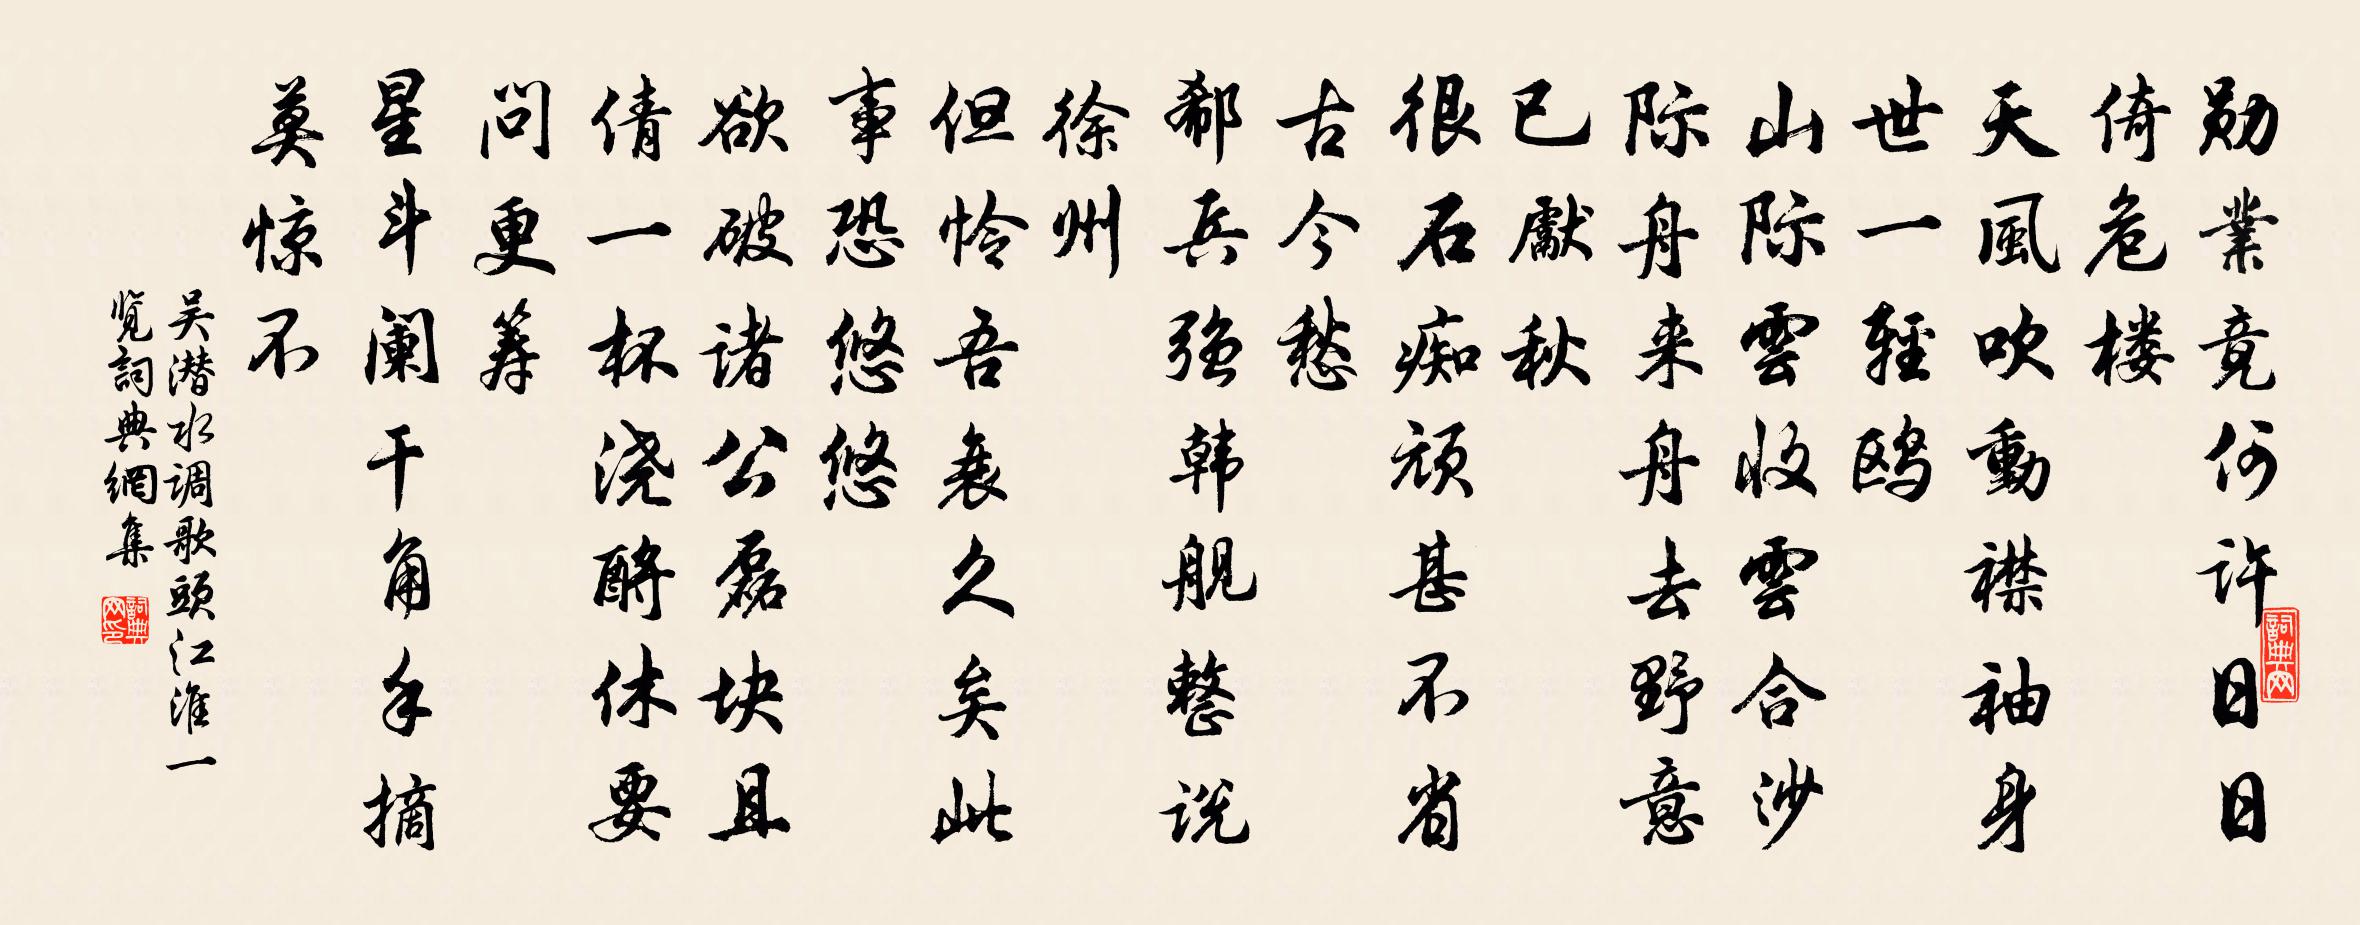 勋業竟何许日日
倚危楼
天風吹動襟袖身
世一輕鸥
山际雲收雲合沙
际舟来舟去野意
已獻秋
很石痴顽甚不省
古今愁
郗兵强韩舰整说
徐州
但怜吾衰久矣此
事恐悠悠
欲破诸公磊块且
倩一杯浇酹休要
問更筹
星斗阑干角手摘
莫惊不
吴潜水调歌頭江淮一
览詞典網集
詞典网
詞典网印